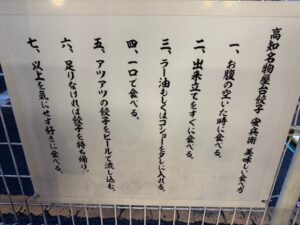 高知名物屋台餃子 安兵衛 美味しい食べ方
一、お腹の空いた時に食べる。
二、出来立てをすぐに食べる。
三、ラー油もしくはコショーをタレに入れる。
四、一口で食べる。
五、アツアツの餃子をビールで流し込む。
六、足りなければ餃子を持ち帰り。
七、以上を気にせず好きに食べる。